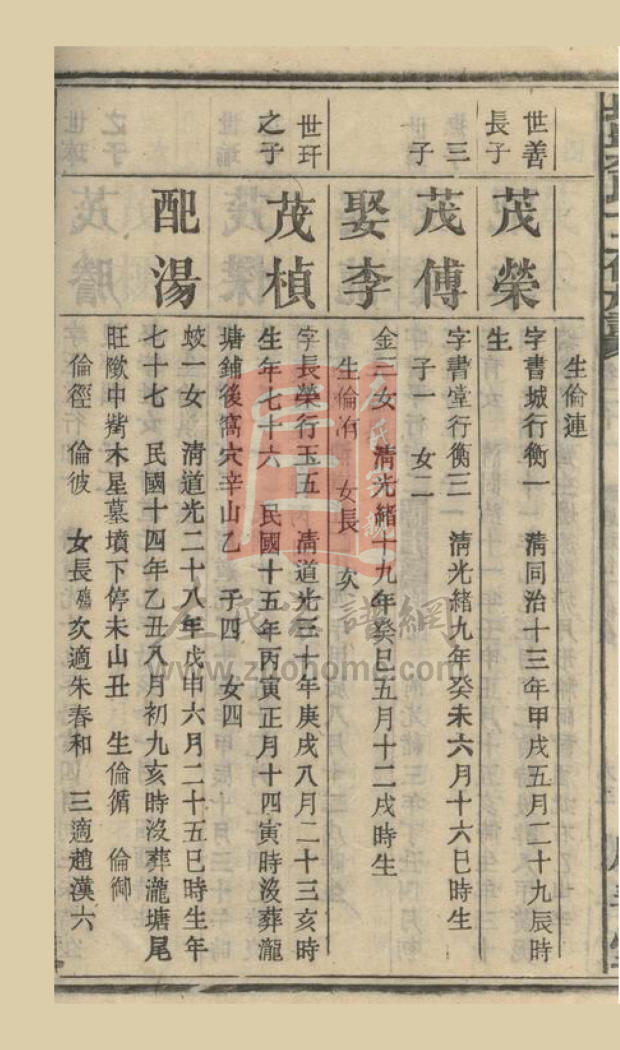 生倫連
世善長子
茂榮
字書城行衡一 清同治十三年甲戌五月二十九辰時
生
三子
茂傅
字書堂行衡三 清光緒九年癸未六月十六巳時生
子一 女二
娶李
金三女 清光緒十九年癸巳五月十二戌時生
生倫冾 女長 次
世玕之子
茂楨
字長榮行玉五 清道光三十年庚戌八月二十三亥時
生年七十六 民國十五年丙寅正月十四寅時沒葬瀧
塘鋪後窩穴辛山乙 子四 女四
配湯
蛟一女 清道光二十八年戊申六月二十五巳時生年
七十七 民國十四年乙丑八月初九亥時沒葬瀧塘尾
旺隞中嘴木星墓墳下停未山丑 生倫循 倫御
倫徑 倫彼 女長殤次適朱春和 三適趙漢六
左氏家譜網
www.zuohome.com